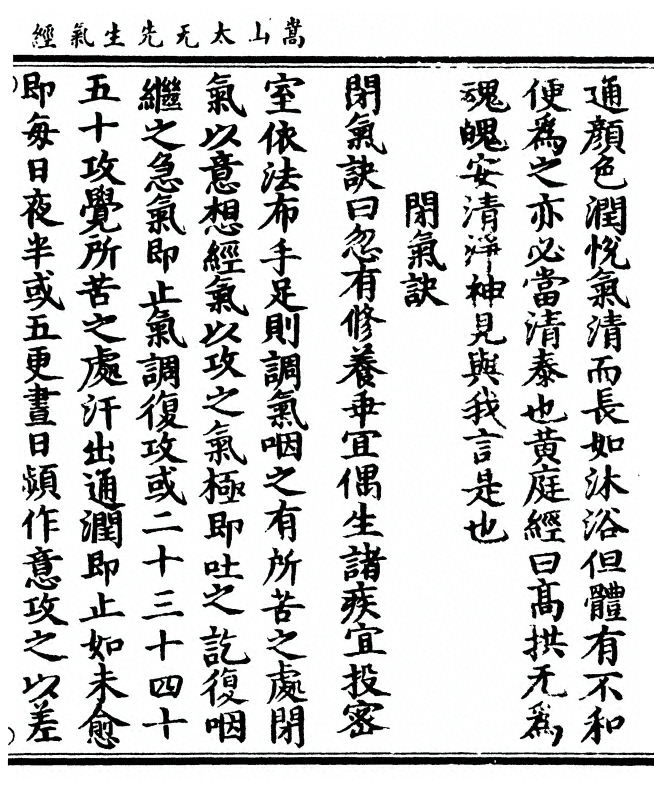 嵩山太无先生氣經
通顔色潤悅氣清而長如沐浴但體有不和
便爲之亦必當清泰也黄庭經曰髙拱无爲
魂魄安清淨神見與我言是也
閉氣訣
閉氣訣曰忽有修養乖冝偶生諸疾宜投密
室依法布手足則調氣咽之有所苦之處閉
氣以意想經氣以攻之氣極即吐之訖復咽
繼之急氣即止氣調復攻或二十三十四十
五十攻覺所苦之處汗出通潤即止如未愈
即每日夜半或五更晝日頻作意攻之以差